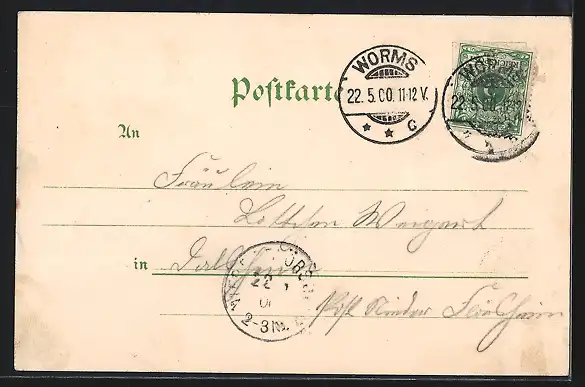 Postkarte
WORMS
22.5.00.11-12 V.
* * c
WORMS
22.5.00.
An
Fräulein
Lottchen Weigert
in
22
2-3 N.
Post Nieder